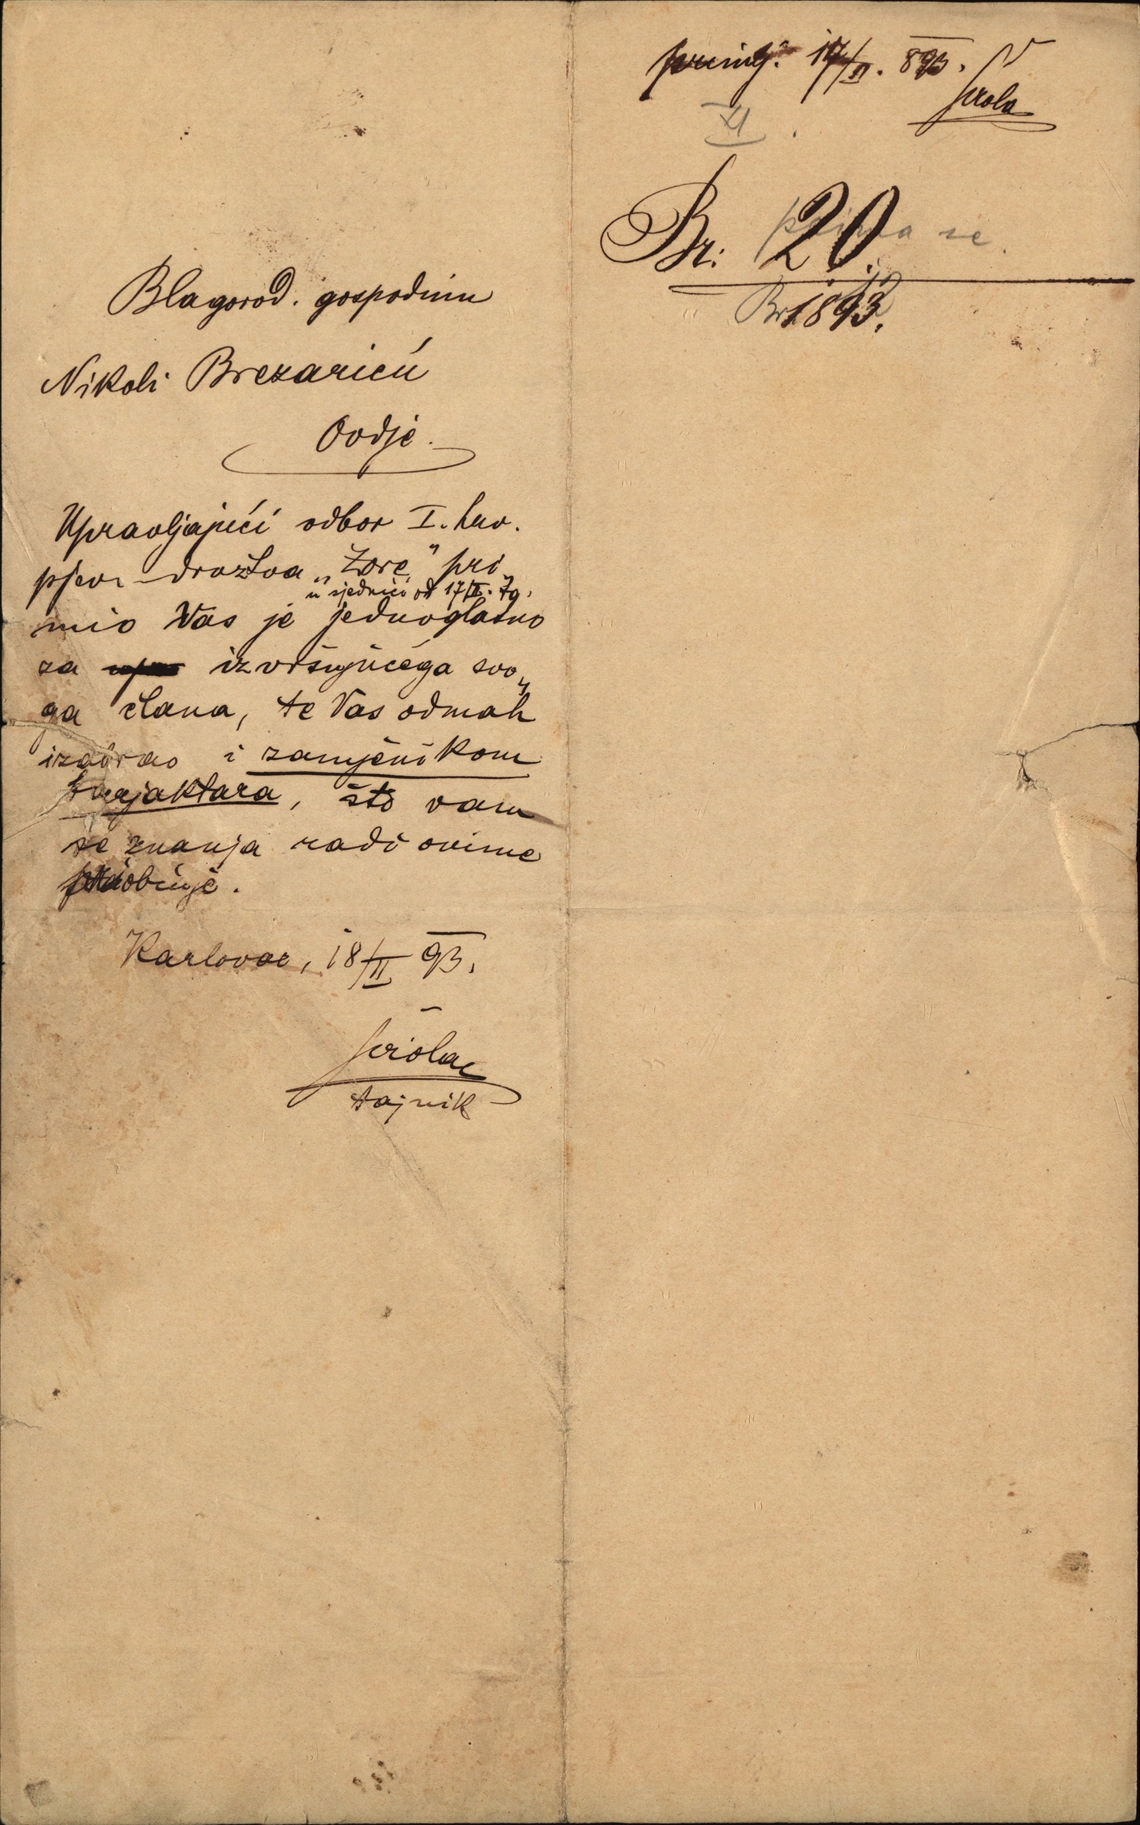 17/II. 893.
XI
Br: 20.
prima se.
Br. 12
1893.
Blagorod. gospodinu
Nikoli Brezariću
Ovdje.
Upravljajući odbor I. hrv.
pjev. družtva „Zore" pri„
u sjednici od 17/II. tg.
mio Vas je jednoglasno
za izvršujućega svo„
ga člana, te Vas odmah
izabrao i zamjenikom
barjaktara, što vam
se znanja radi ovime
priobćuje.
Karlovac, 18/II 93.
tajnik